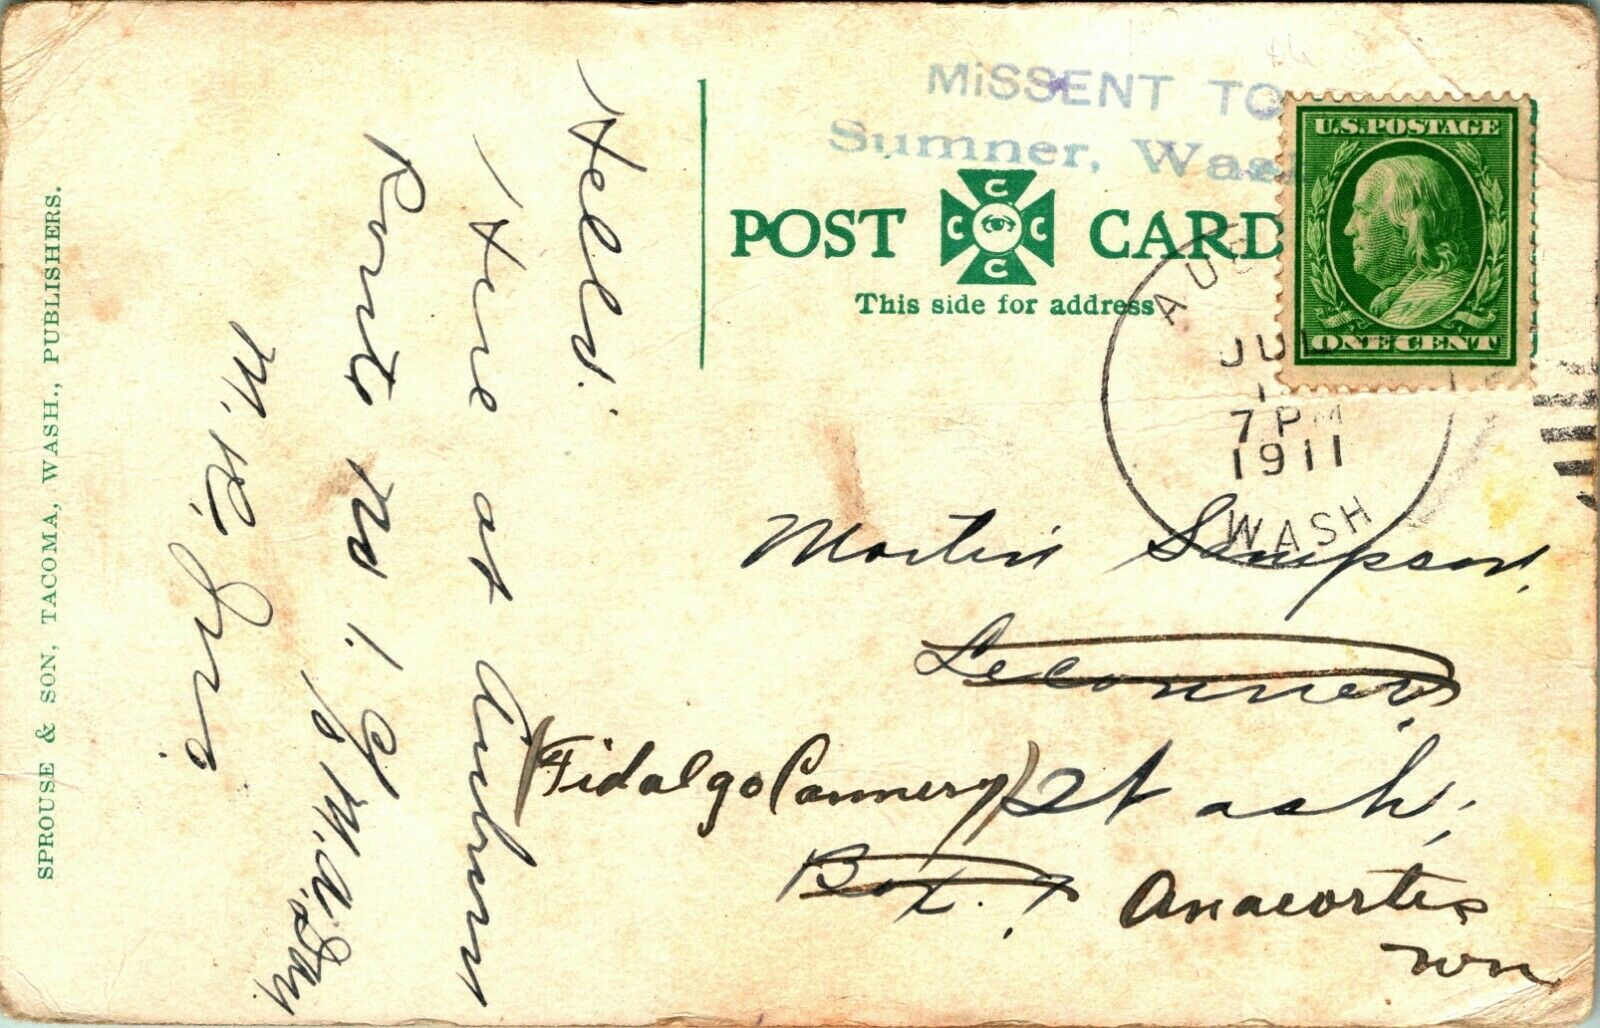 Hello.
Here at Auburn
Route No 1.
M. R.
SPROUSE & SON, TACOMA, WASH., PUBLISHERS.
MiSSENT TO
Sumner, Wash
POST CARD
C C C C
This side for address
U.S. POSTAGE
ONE CENT
AUB
JUL
1
7 PM
1911
WASH
Martin Sampson,
Leconner,
(Fidalgo Cannery) Wash,
Box. 7
Anacortes
Wn